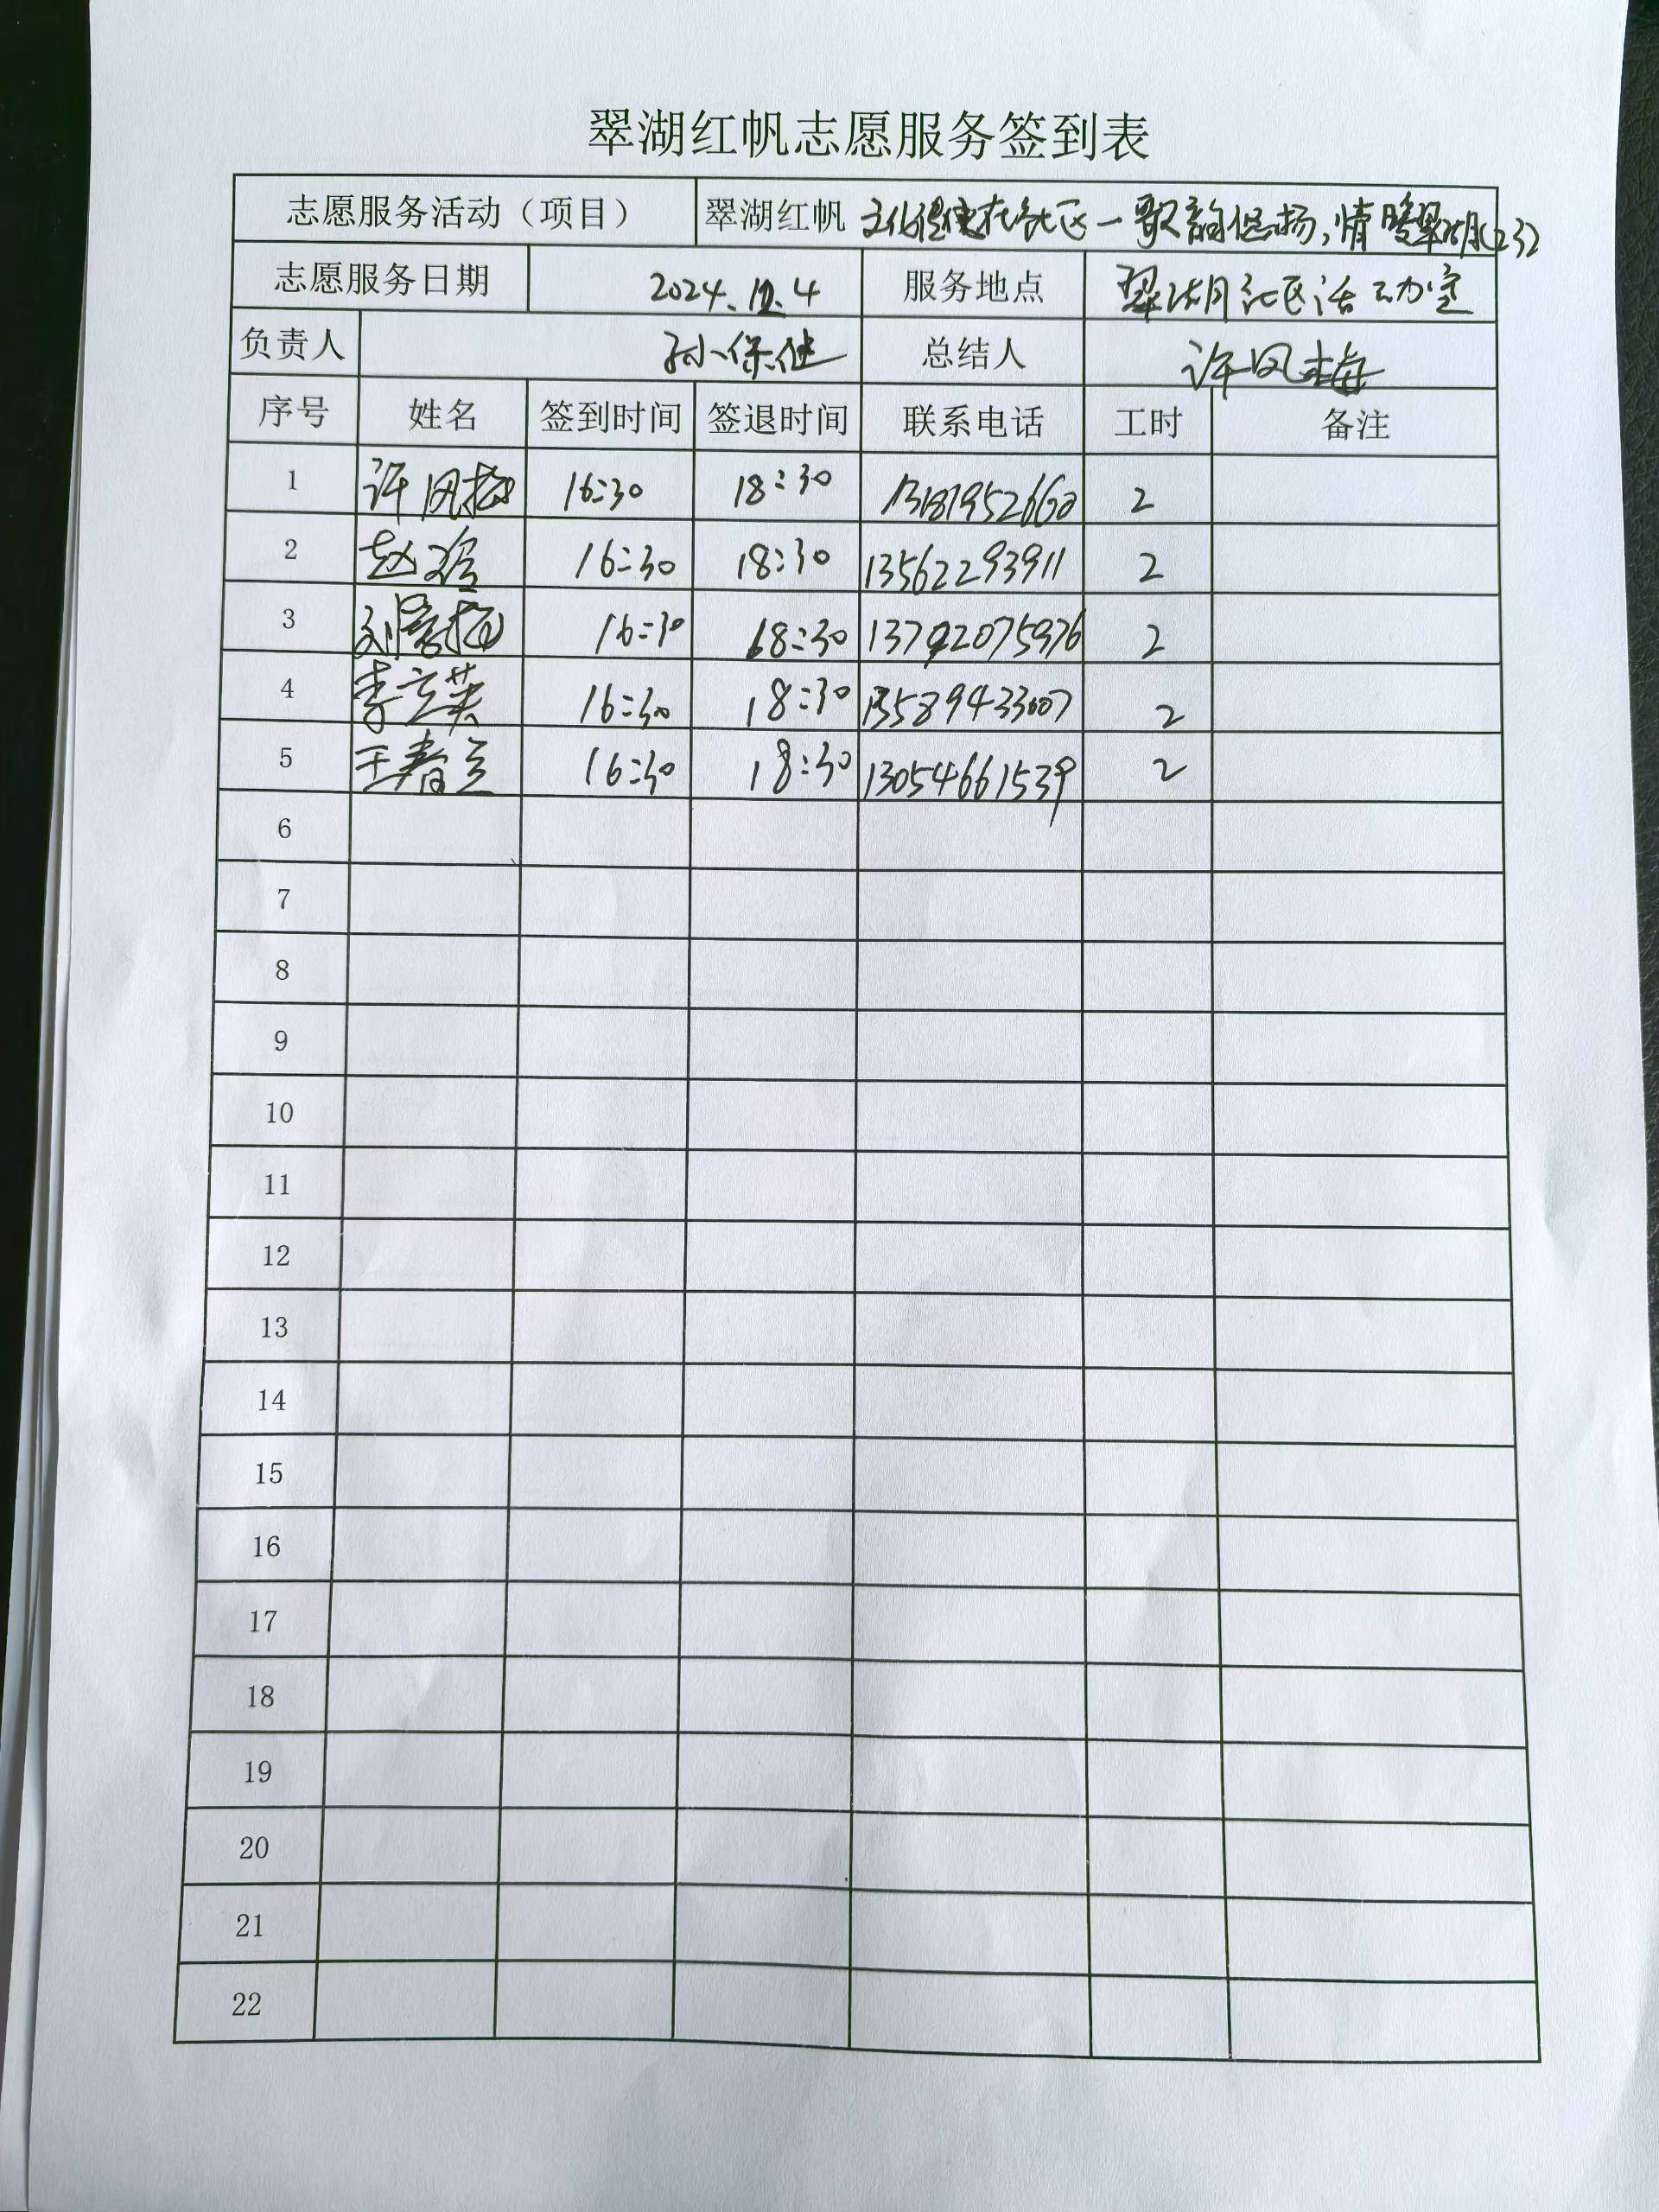 翠湖红帆志愿服务签到表
志愿服务活动（项目） 翠湖红帆 文化 在社区一歌韵悠扬,情暖翠湖(23)
志愿服务日期 2024.12.4 服务地点 翠湖社区活动室
负责人 孙保健 总结人 许凤梅
序号 姓名 签到时间 签退时间 联系电话 工时 备注
1 许凤梅 16:30 18:30 13181952660 2
2 赵 16:30 18:30 13562293911 2
3 刘 梅 16:30 18:30 13792075976 2
4 李立英 16:30 18:30 13589433007 2
5 王春兰 16:30 18:30 13054661539 2
6
7
8
9
10
11
12
13
14
15
16
17
18
19
20
21
22